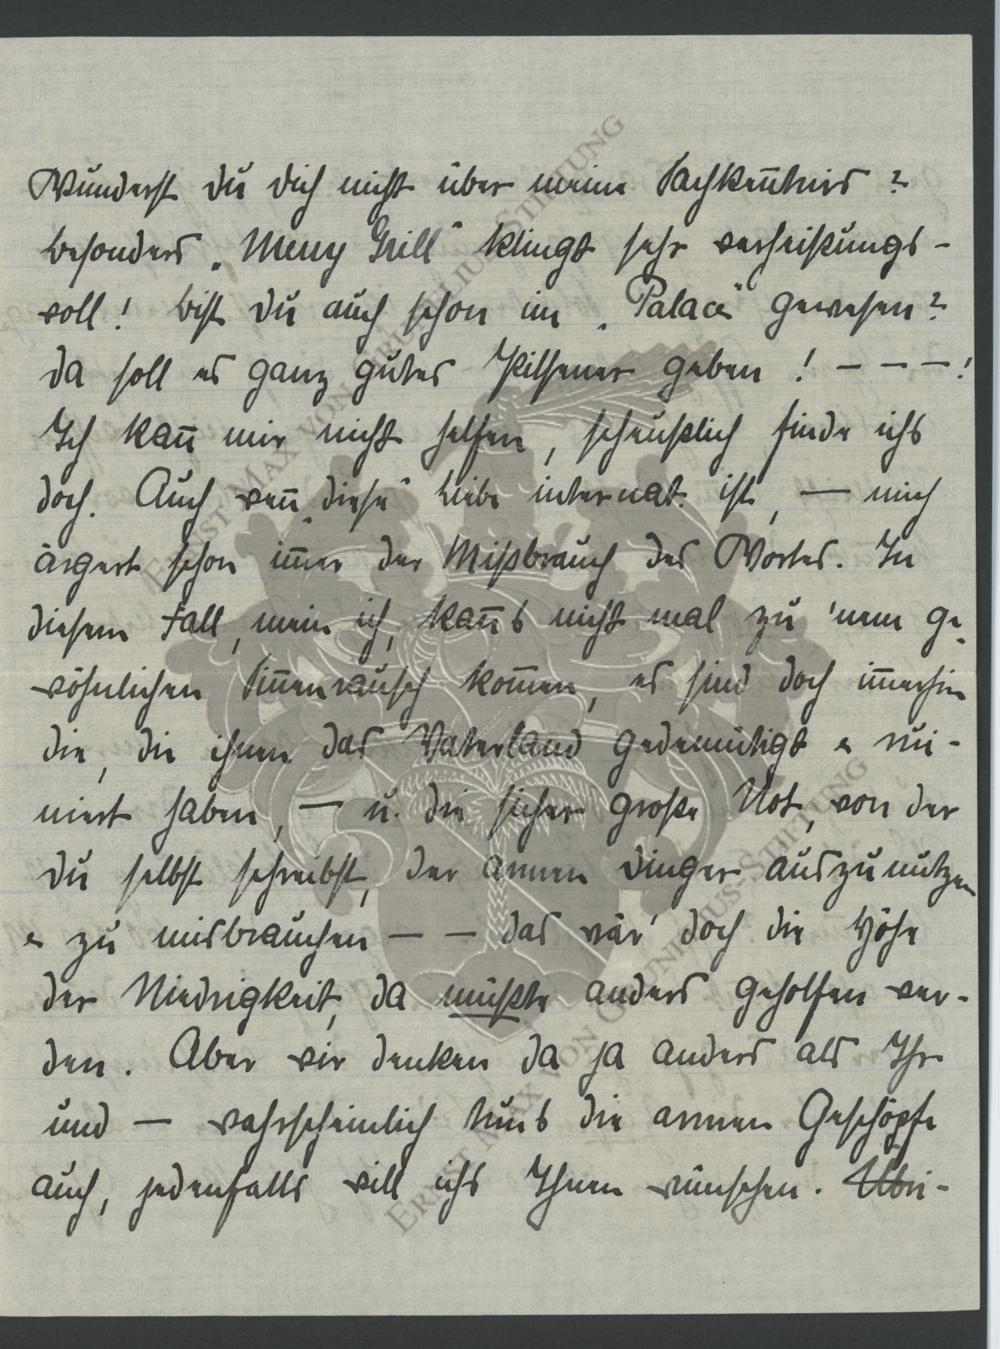 Wunderst du dich nicht über meine Sachkeñtnis?
besonders „Meny Grill" klingt sehr verheißungs-
voll! bist du auch schon im „Palace" gewesen?
da soll es ganz gutes Pilsener geben! – – – !
Ich kañ mir nicht helfen, scheußlich finde ichs
doch. Auch weñ „diese" Liebe internat. ist, — mich
ärgert schon im̄er der Mißbrauch des Wortes. In
diesem Fall, mein ich, kañs nicht mal zu 'nem ge-
wöhnlichen Siñenrausch kom̄en, es sind doch im̄erhin
die, die ihnen das Vaterland gedemütigt & rui-
niert haben, — u. die sicher große Not, von der
du selbst schreibst, der armen Dinger auszunutzen
& zu misbrauchen — — das wär' doch die Höhe
der Niedrigkeit, da müßte anders geholfen wer-
den. Aber wir denken da ja anders als Ihr
und — wahrscheinlich tuns die armen Geschöpfe
auch, jedenfalls will ichs Ihnen wünschen. Übri-
ERNST MAX VON GRUNELIUS-STIFTUNG
ERNST MAX VON GRUNELIUS-STIFTUNG